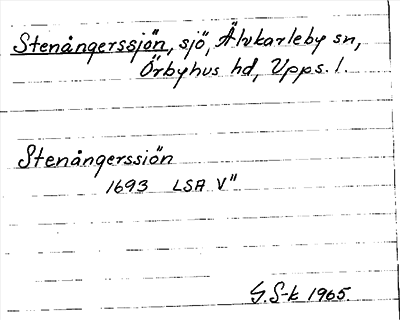 Stenångerssjön, sjö, Älvkarleby sn,
Örbyhus hd, Upps. l.
Stenångerssiön
1693 LSA V"
G.S-k 1965.